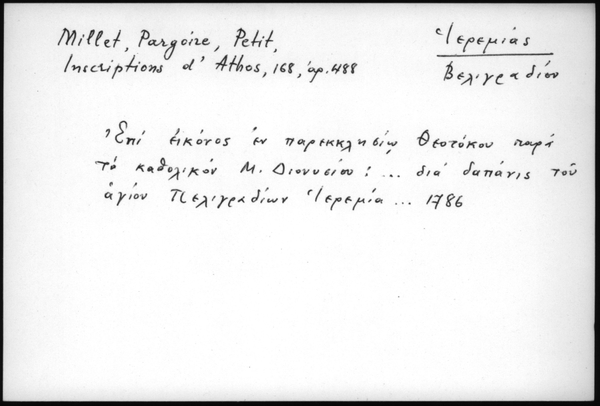 Millet, Pargoire, Petit,
Inscriptions d' Athos, 168, ἀρ. 488
Ἱερεμίας
Βελιγραδίου
Ἐπί εἰκόνος ἐν παρεκκλησίῳ Θεοτόκου παρά
τό καθολικόν Μ. Διονυσίου: ... διά δαπάνις τοῦ
ἁγίου Πελιγραδίων Ἱερεμία ... 1786